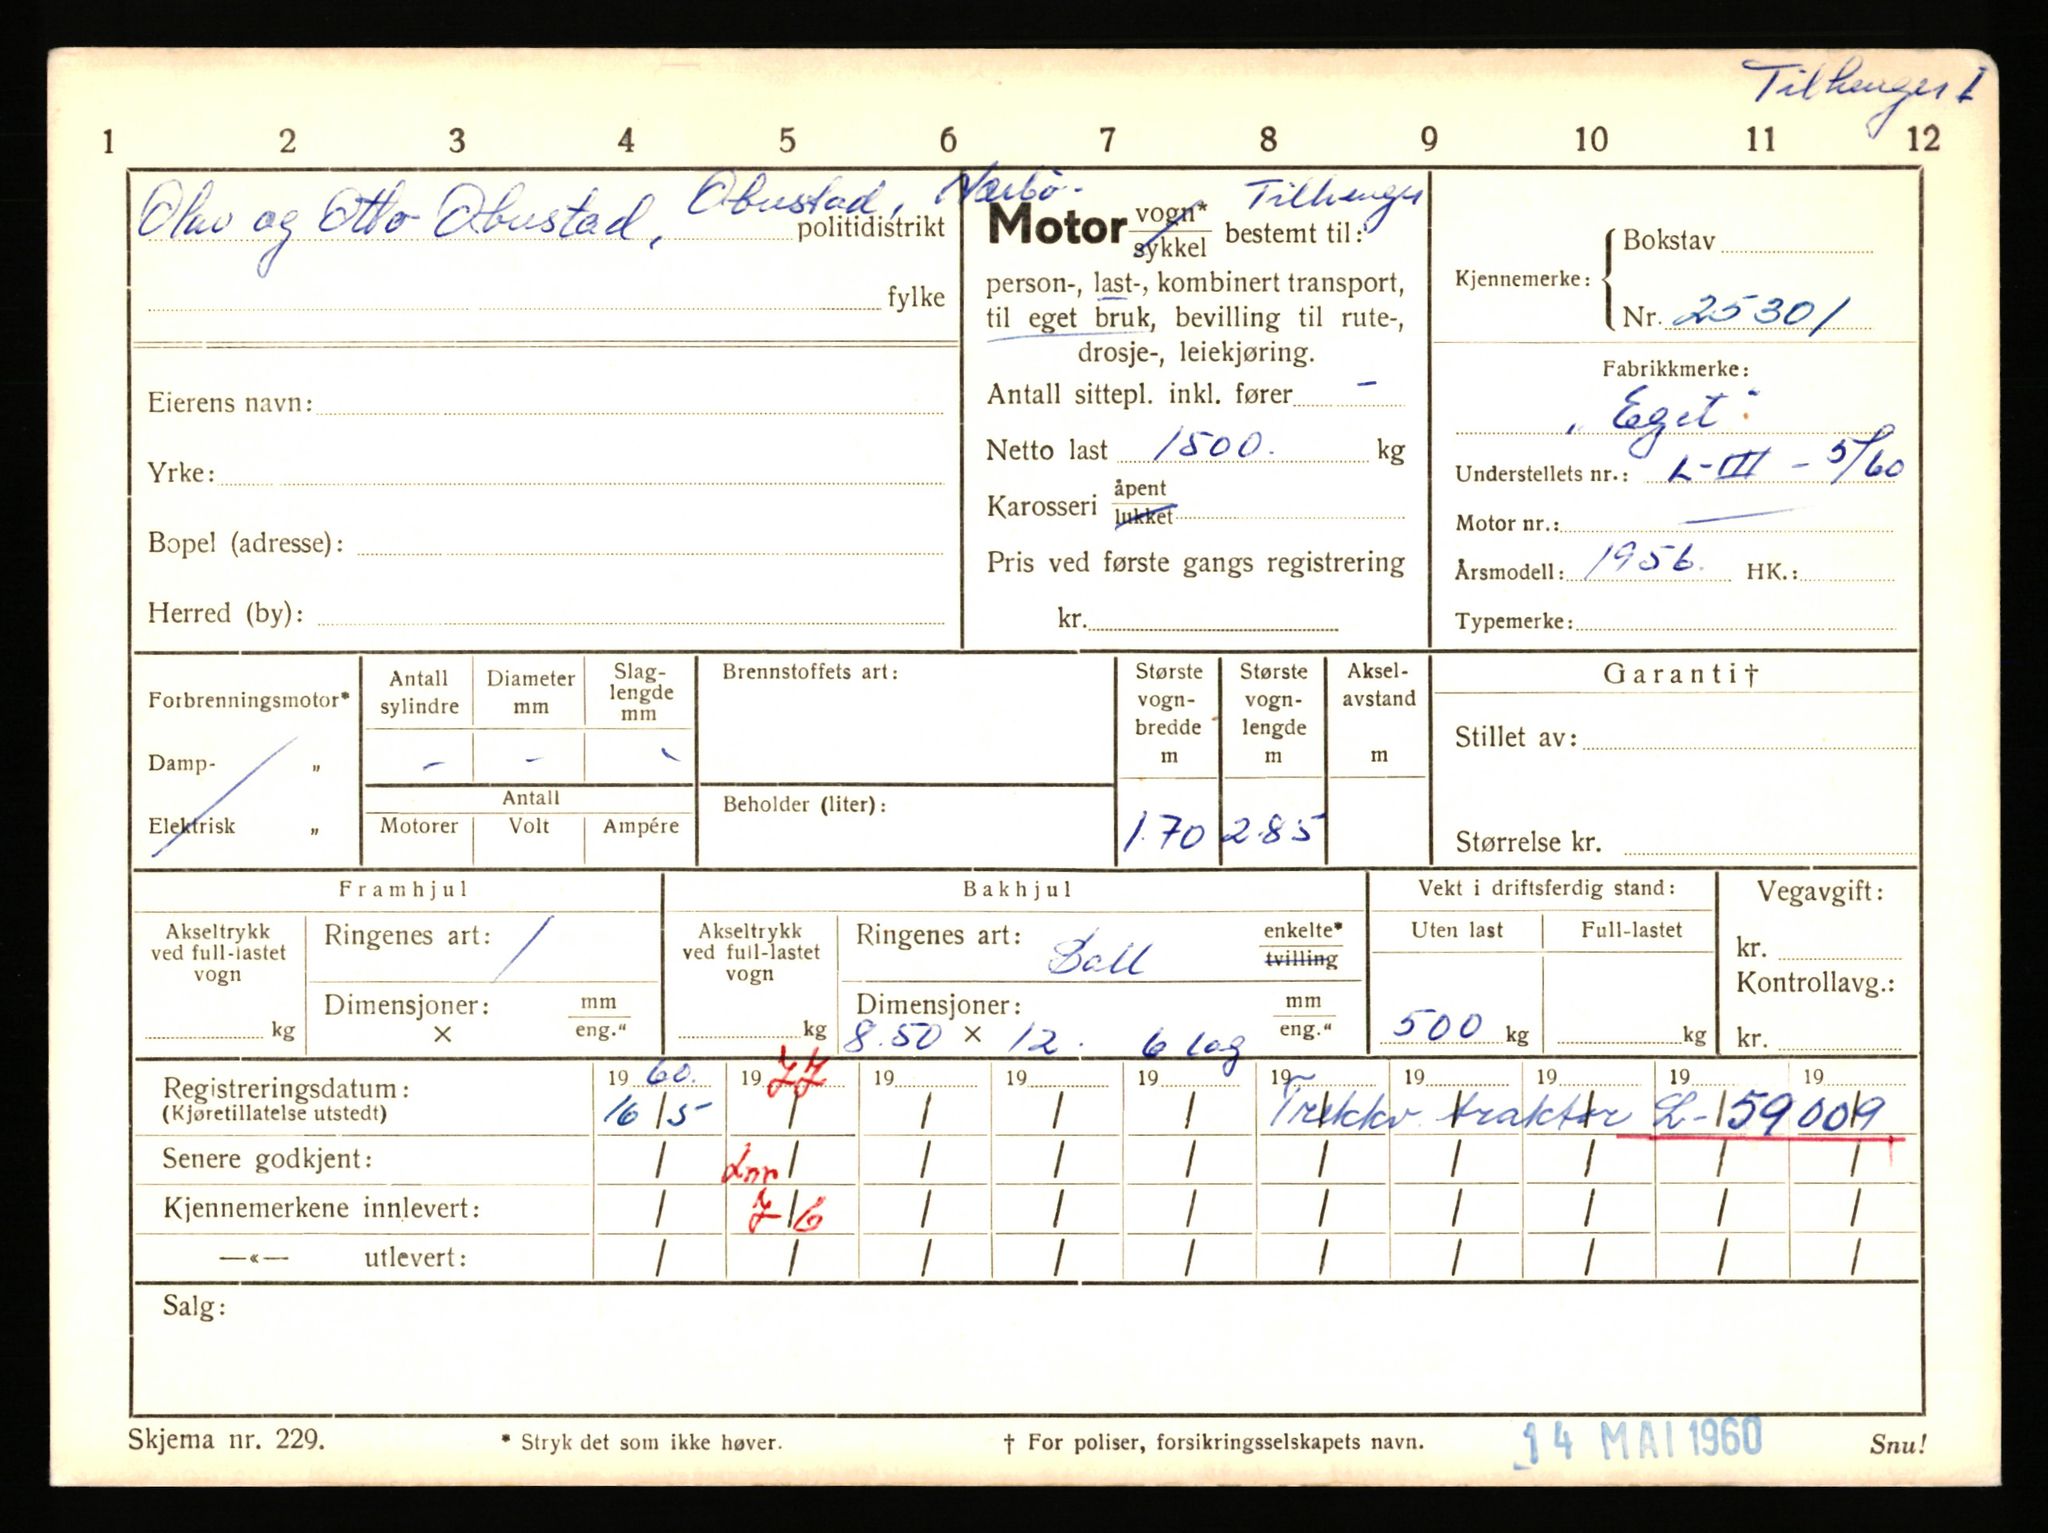 Tilhenger I
1 2 3 4 5 6 7 8 9 10 11 12
Olav og Otto Obrestad, Obrestad, Nærbø.
politidistrikt
fylke
Eierens navn:
Yrke:
Bopel (adresse):
Herred (by):
Tilhenger
Motor vogn* sykkel bestemt til:
person-, last-, kombinert transport,
til eget bruk, bevilling til rute-,
drosje-, leiekjøring.
Antall sittepl. inkl. fører –
Netto last 1500. kg
Karosseri åpent lukket
Pris ved første gangs registrering
kr.
Kjennemerke: Bokstav
Nr. 25301
Fabrikkmerke:
„Eget“
Understellets nr.: L-III-5/60
Motor nr.: —
Årsmodell: 1956. HK.:
Typemerke:
Forbrenningsmotor*
Damp- „
Elektrisk „
Antall sylindre
Diameter mm
Slag-lengde mm
– – –
Antall
Motorer Volt Ampére
Brennstoffets art:
Beholder (liter):
Største vogn-bredde m
1.70
Største vogn-lengde m
2.85
Aksel-avstand m
Garanti†
Stillet av:
Størrelse kr.
Framhjul
Akseltrykk ved full-lastet vogn
kg
Ringenes art: /
Dimensjoner: × mm eng."
Bakhjul
Akseltrykk ved full-lastet vogn
kg
Ringenes art: enkelte* tvilling
Dimensjoner: mm eng."
8.50 × 12. 6 lag
Vekt i driftsferdig stand:
Uten last Full-lastet
500 kg kg
Vegavgift:
kr.
Kontrollavg.:
kr.
Registreringsdatum: 19 60. 19 77 19 19 19 19 19 19 19 19
(Kjøretillatelse utstedt) 16/5 / / / / Trekkv. traktor L-59009
Senere godkjent: / / / / / / / / / /
Lnr
Kjennemerkene innlevert: / 7/6 / / / / / / / /
—«— utlevert: / / / / / / / / / /
Salg:
Skjema nr. 229.
* Stryk det som ikke høver.
† For poliser, forsikringsselskapets navn.
14 MAI 1960
Snu!